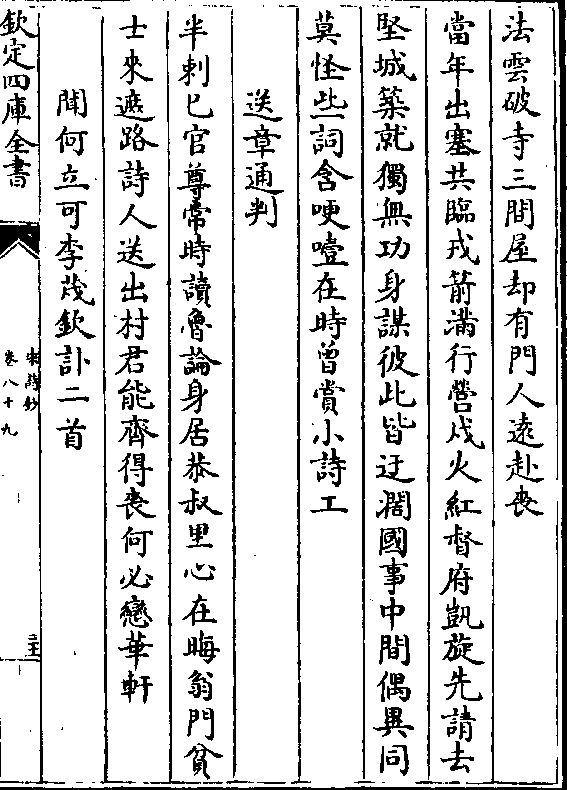 法雲破寺三間屋却有門人遠赴喪
當年出塞共臨戎箭滿行營戍火紅督府凱旋先請去
堅城築就獨無功身謀彼此皆迂濶國事中間偶異同
莫怪些詞含哽噎在時曾賞小詩工
送章通判
半刺已官尊常時讀魯論身居恭叔里心在晦翁門貧
士來遮路詩人送出村君能齊得喪何必戀華軒
聞何立可李茂欽訃二首
欽定四庫全書
宋詩鈔
卷八十九